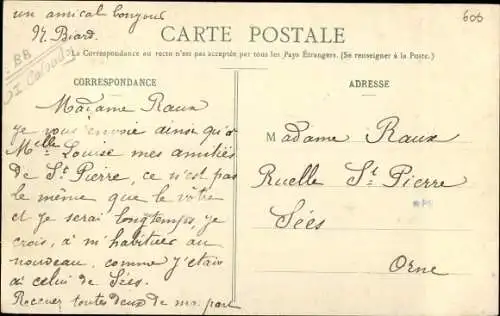 un amical bonjour
N. Biard.
605
BB
CARTE POSTALE
La Correspondance au recto n'est pas acceptée par tous les Pays Étrangers. (Se renseigner à la Poste.)
CORRESPONDANCE
Madame Raux
Je vous envoie ainsi qu'à
Melle Louise mes amitiés
de St Pierre, ce n'est pas
le même que le vôtre
et je serai longtemps, je
crois, à m'habituer au
nouveau, comme j'étais
à celui de Sées.
Recevez toutes deux de ma part
ADRESSE
Madame Raux
Ruelle St Pierre
Sées
Orne